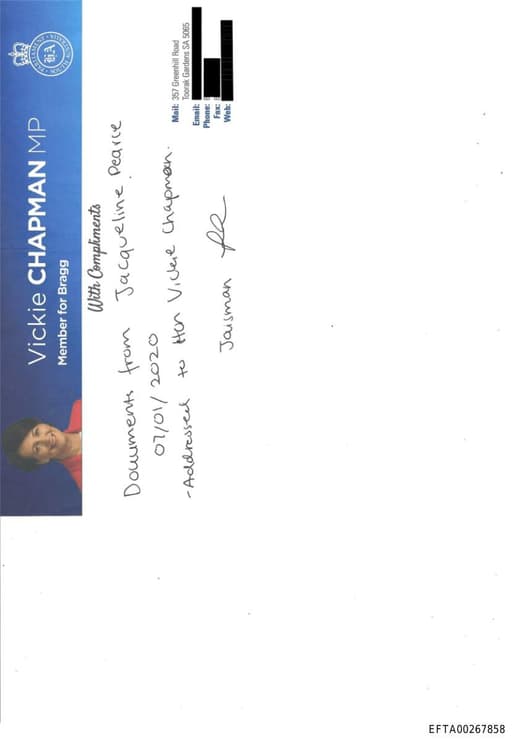 Vickie CHAPMAN MP
Member for Bragg
With Compliments
Documents from Jacqueline Pearce
07/01/2020
- Addressed to Hon Vickie Chapman.
Jaisman
Mail: 357 Greenhill Road
Toorak Gardens SA 5065
Email:
Phone:
Fax:
Web:
EFTA00267858